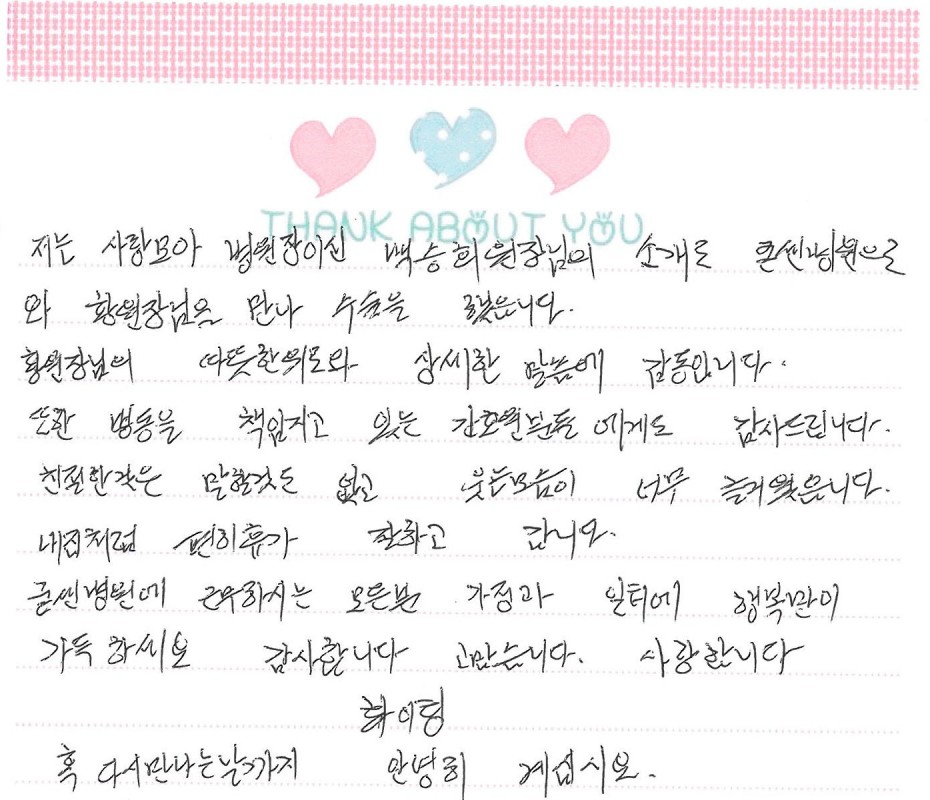 THANK ABOUT YOU
저는 사랑모아 병원장이신 백승희원장님의 소개로 큰씬병원으로
와 황원장님을 만나 수술을 했습니다.
황원장님의 따뜻한위로와 상세한 말씀에 감동입니다.
또한 병동을 책임지고 있는 간호원분들에게도 감사드립니다.
친절한것은 말할것도 없고 웃는모습이 너무 즐거웠습니다.
내집처럼 편히휴가 잘하고 갑니다.
굳씬병원에 근무하시는 모든분 가정과 일터에 행복만이
가득 하씨요 감사합니다 고맙습니다. 사랑합니다
화이팅
혹 다시만나는날까지 안녕히 계십시요.